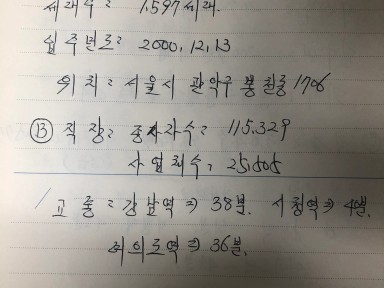 세대수 : 1,597세대.
입주년도: 2000.12.13
위치 : 서울시 관악구 봉천동 1706
⑬ 직장 : 종사자수 : 115,329
사업체수 : 25,605
교통 : 강남역⇒ 38분. 시청역⇒ 4분.
여의도역⇒ 36분.